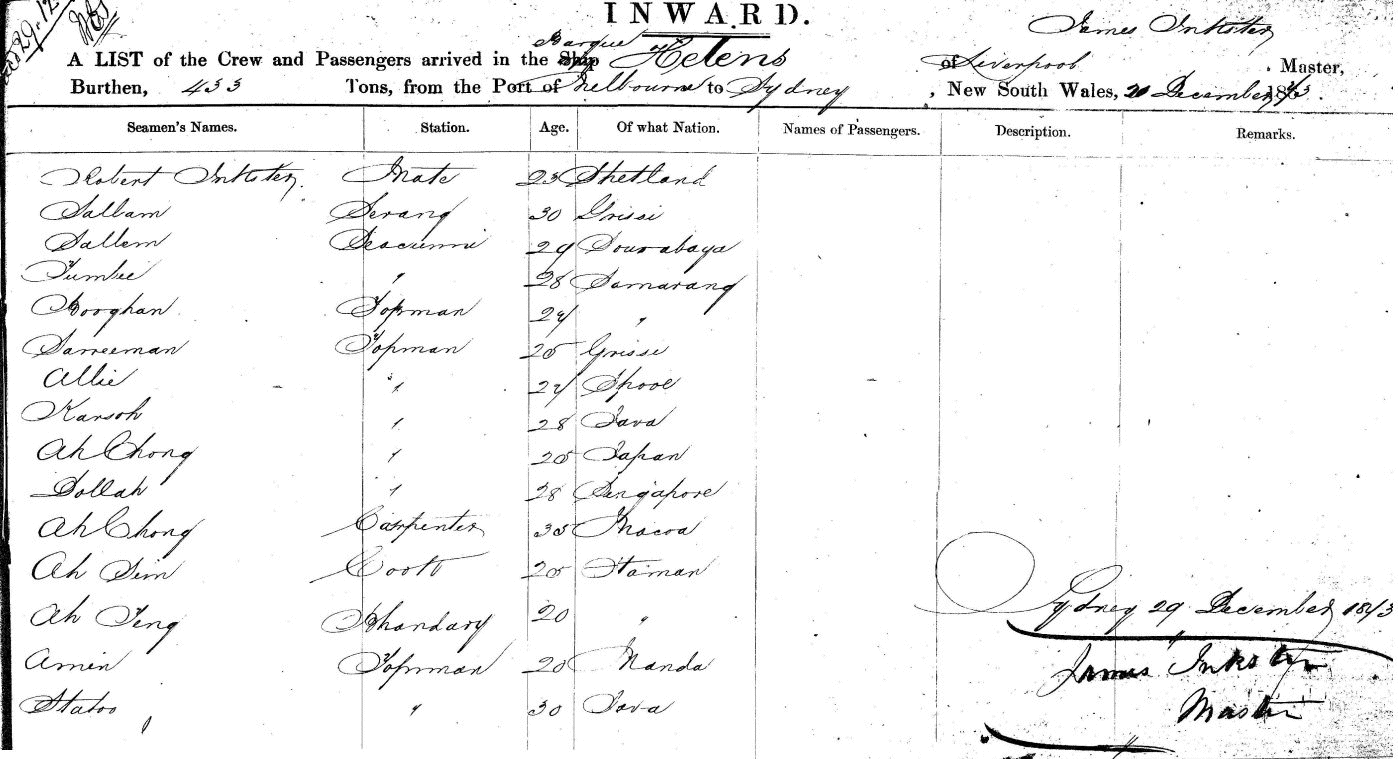 INWARD.
James Inkster
Barque
A LIST of the Crew and Passengers arrived in the Ship Helens of Liverpool Master,
Burthen, 433 Tons, from the Port of Melbourne to Sydney, New South Wales, December 1873.
Seamen's Names. Station. Age. Of what Nation. Names of Passengers. Description. Remarks.
Robert Inkster Mate 23 Shetland
Sallam Serang 30 Grissi
Sallem Seacunni 29 Sourabaya
Tumbie " 28 Samarang
Rooghan Topman "
Sarreeman Topman 25 Grissi
Allie "
Karsoh " 28 Java
Ah Chong " 25 Japan
Dollah " 28 Singapore
Ah Chong Carpenter 35 Macoa
Ah Sim Cook 25
Sydney 29 December 1873
Ah Teng Bhandary 20 "
James Inkster
Amin Topman 20
Master
Statoo " 30 Java